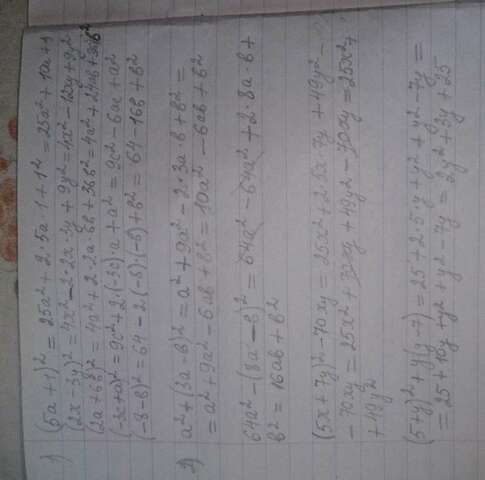 1) (5a+1)² = 25a² + 2·5a·1 + 1² = 25a² + 10a + 1
(2x-3y)² = 4x² - 2·2x·3y + 9y² = 4x² - 12xy + 9y²
(2a+6b)² = 4a² + 2·2a·6b + 36b² = 4a² + 24ab + 36b²
(-3c+a)² = 9c² + 2·(-3c)·a + a² = 9c² - 6ac + a²
(-8-b)² = 64 - 2(-8)·(-b) + b² = 64 - 16b + b²
2) a² + (3a-b)² = a² + 9a² - 2·3a·b + b² =
= a² + 9a² - 6ab + b² = 10a² - 6ab + b²
64a² - (8a-b)² = 64a² - 64a² + 2·8a·b +
b² = 16ab + b²
(5x+7y)² - 70xy = 25x² + 2·5x·7y + 49y² -
- 70xy = 25x² + 70xy + 49y² - 70xy = 25x² +
+ 49y²
(5+y)² + y(y-7) = 25 + 2·5·y + y² + y² - 7y =
= 25 + 10y + y² + y² - 7y = 2y² + 3y + 25